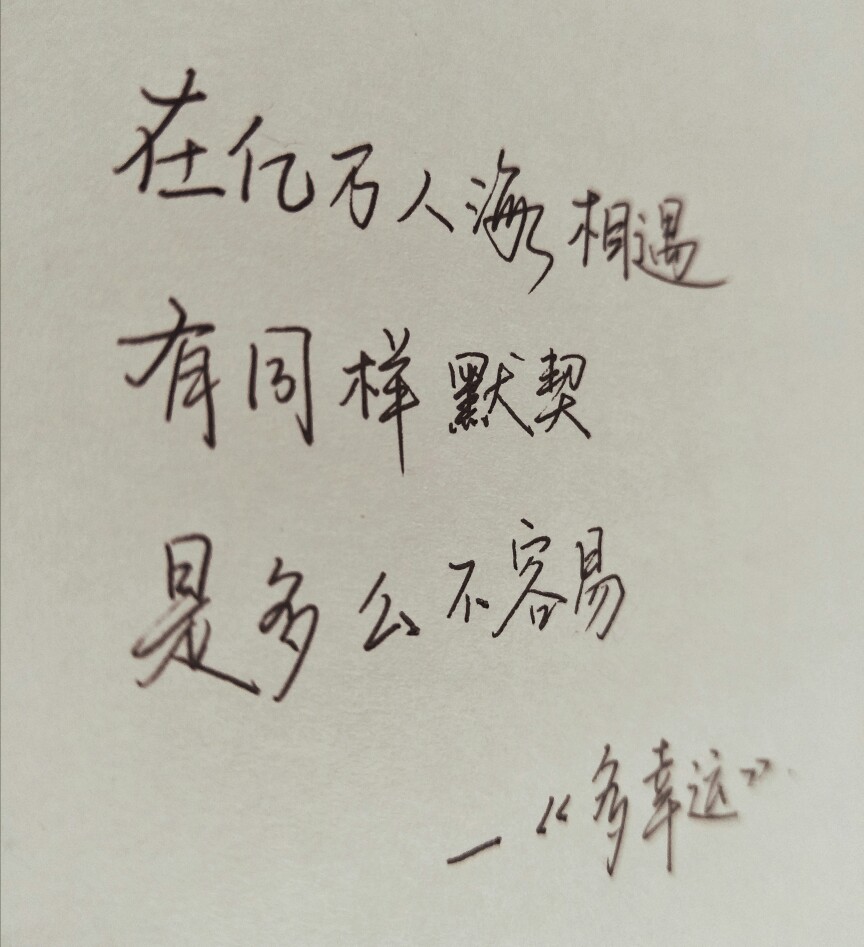 在亿万人海相遇
有同样默契
是多么不容易
—《多幸运》